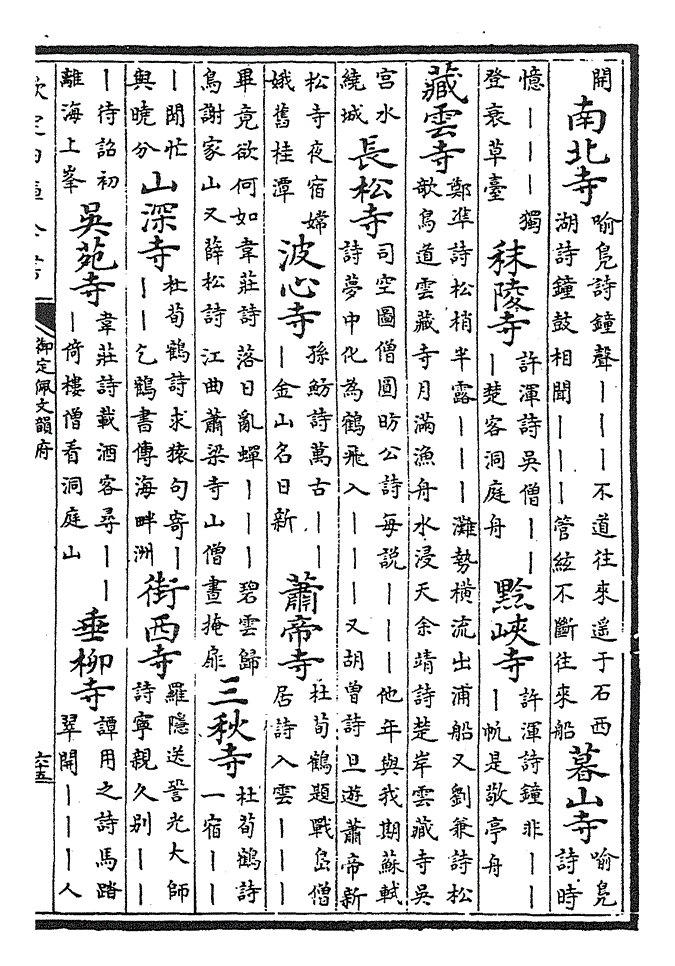 開南北寺喻鳧詩鐘聲｜｜｜不道往來遥于石西湖詩鐘鼓相聞｜｜｜管絃不斷往來船暮山寺喻鳧詩時
憶｜｜｜獨登衰草臺秣陵寺許渾詩吳僧｜｜｜楚客洞庭舟黔峽寺許渾詩鐘非｜｜｜帆是敬亭舟
藏雲寺鄭凖詩松梢半露｜｜｜灘勢橫流出浦船又劉兼詩松欹鳥道雲藏寺月滿漁舟水浸天余靖詩楚岸雲藏寺吳
宫水繞城長松寺司空圖僧圓昉公詩每説｜｜｜他年與我期蘇軾詩夢中化為鶴飛入｜｜｜又胡曾詩旦遊蕭帝新
松寺夜宿嫦娥舊桂潭波心寺孫魴詩萬古｜｜｜金山名日新蕭帝寺杜荀鶴題戰島僧居詩入雲｜｜｜
畢竟欲何如韋莊詩落日亂蟬｜｜｜碧雲歸鳥謝家山又薛松詩江曲蕭梁寺山僧晝掩扉三秋寺杜荀鶴詩一宿｜｜
｜閒忙與曉分山深寺杜荀鶴詩求猿句寄｜｜｜乞鶴書傳海畔洲街西寺羅隱送䛒光大師詩寧親久別｜｜
｜待詔初離海上峯吳苑寺韋莊詩載酒客尋｜｜｜倚樓僧看洞庭山垂柳寺譚用之詩馬踏翠開｜｜｜人
欽定四庫全書
御定佩文韻府
六十五